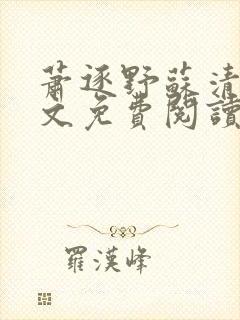 蕭逐野蘇清
文免費閱讀
羅漢峰